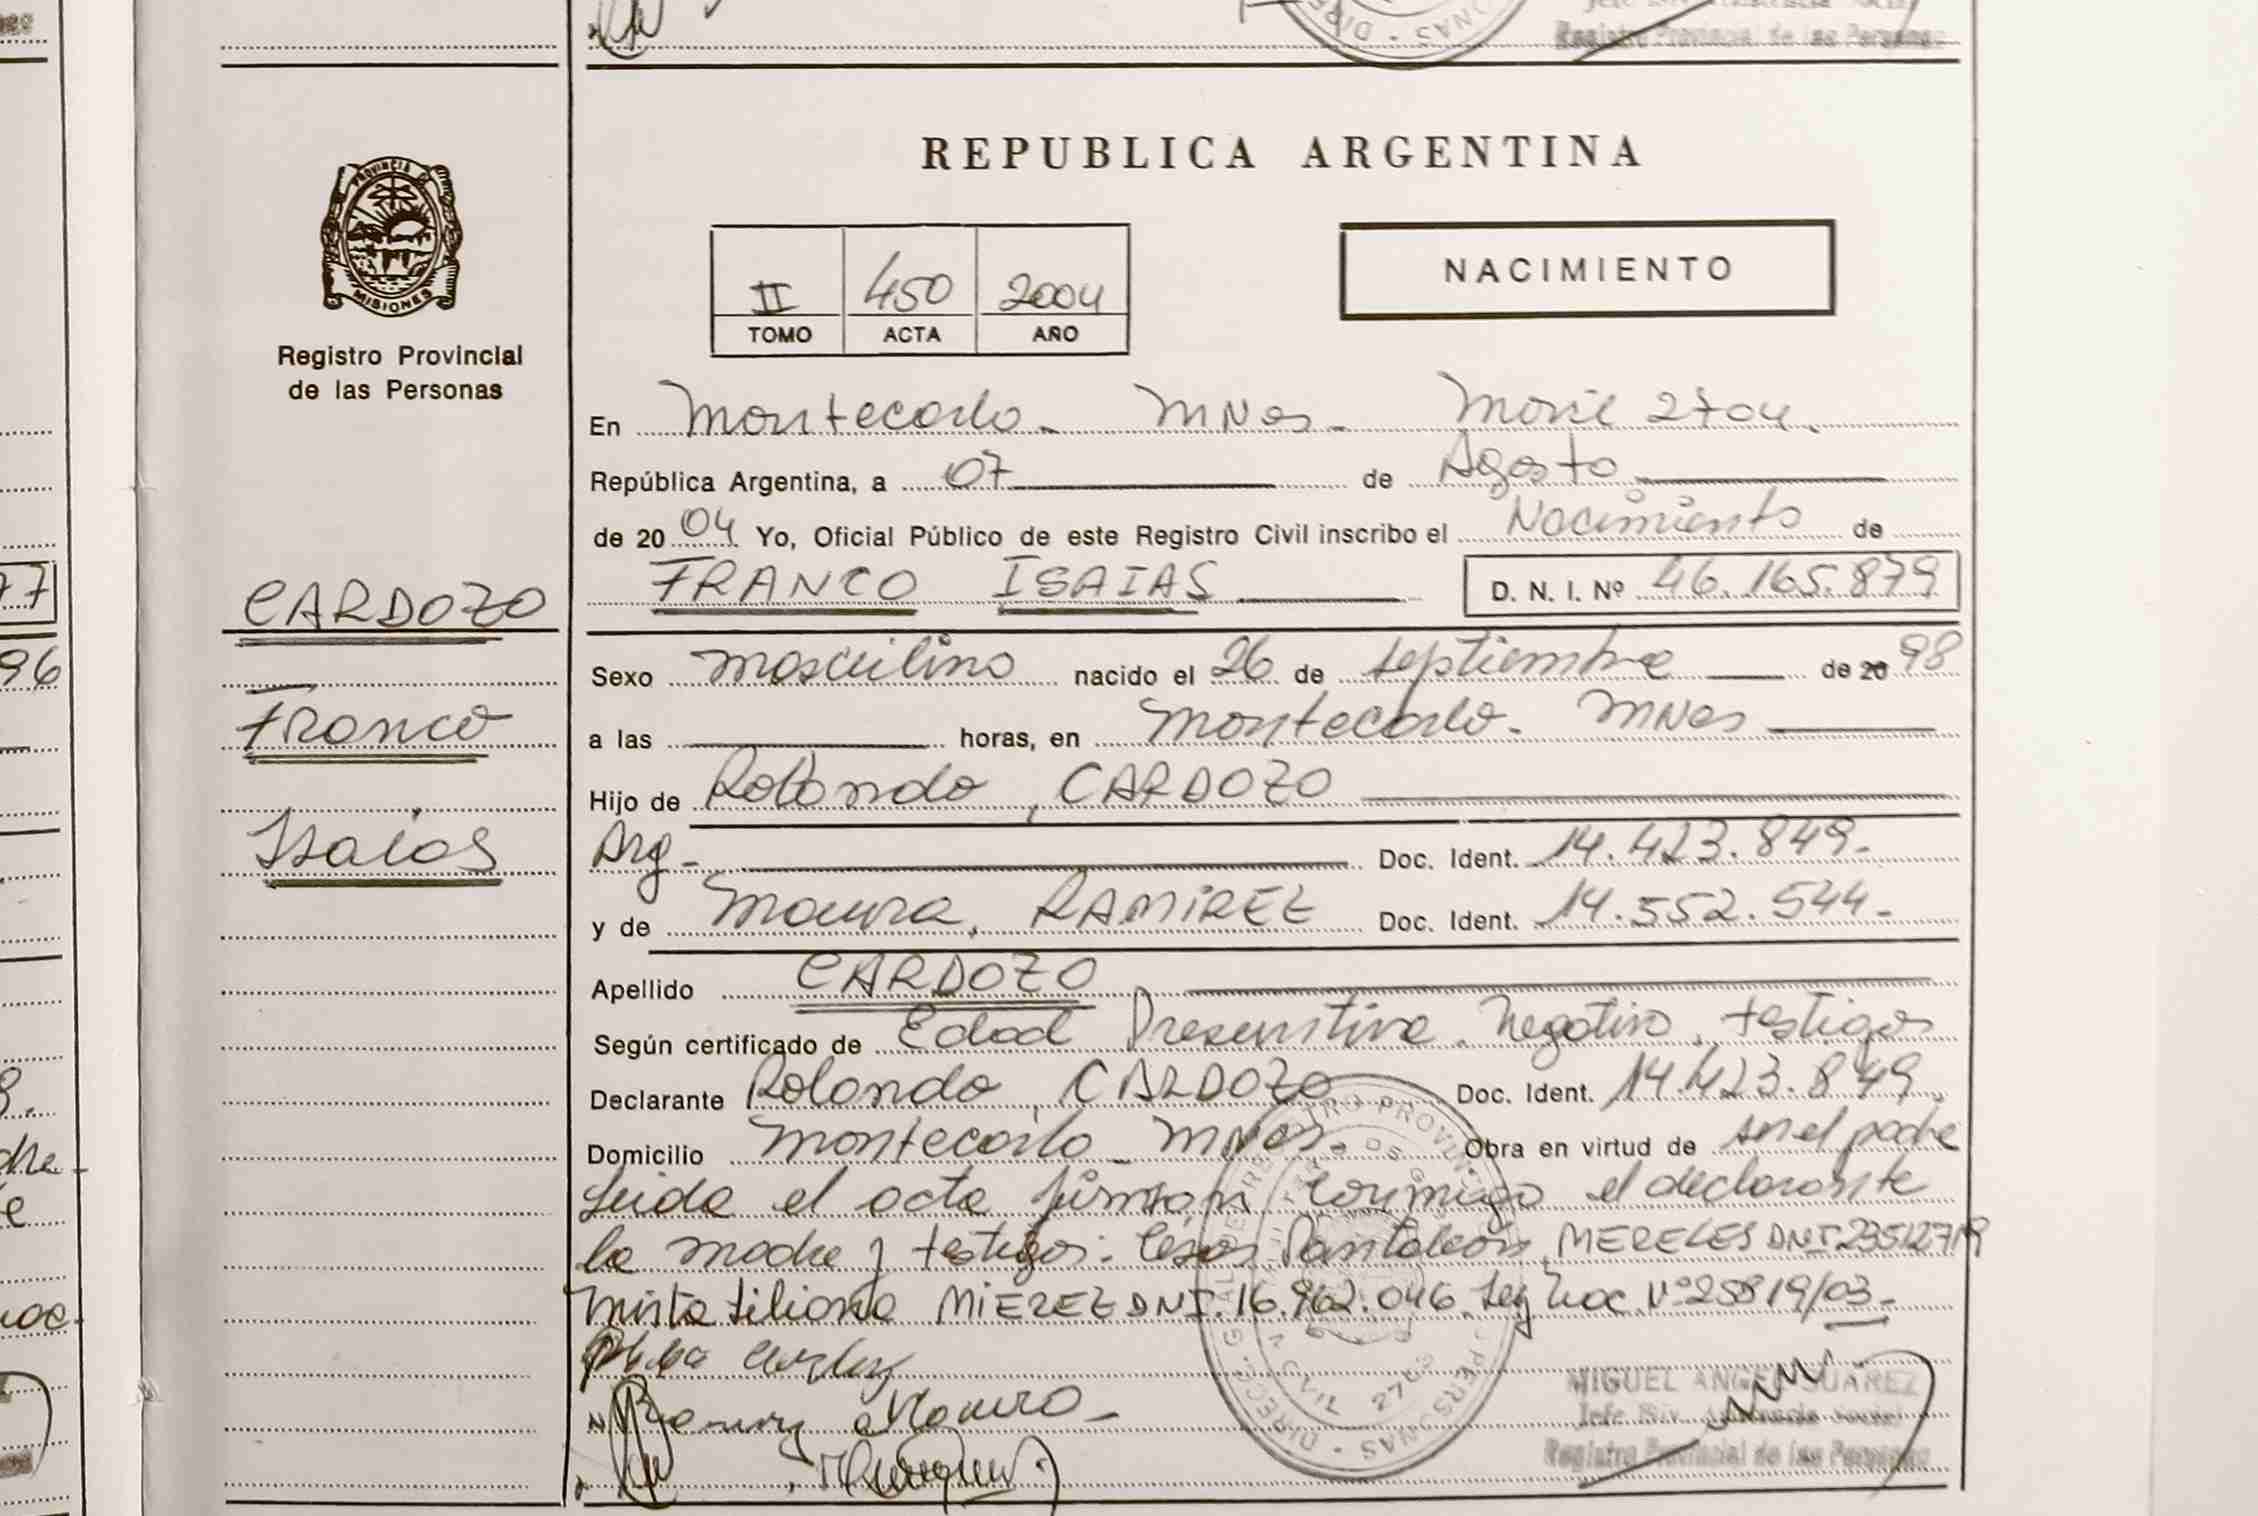 Registro Provincial de las Personas
REPUBLICA ARGENTINA
PROVINCIA DE
MISIONES
Registro Provincial
de las Personas
II 450 2004
TOMO ACTA AÑO
NACIMIENTO
En Montecarlo - Mnes - Movil 2704.
República Argentina, a 07 de Agosto
de 2004 Yo, Oficial Público de este Registro Civil inscribo el Nacimiento de
FRANCO ISAIAS D. N. I. Nº 46.165.879
CARDOZO
Franco
Isaias
Sexo masculino nacido el 26 de septiembre de 20 98
a las horas, en Montecarlo - Mnes
Hijo de Rolando, CARDOZO
Arg - Doc. Ident. 14.423.849-
y de Maura, RAMIREZ Doc. Ident. 14.552.544-
Apellido CARDOZO
Según certificado de Edad Presuntiva, Negativo, testigos
Declarante Rolando, CARDOZO Doc. Ident. 14.423.849
Domicilio Montecarlo - Mnes - Obra en virtud de ser el padre
Leida el acta firman conmigo el declarante
la madre y testigos: Pantaleon MERELES DNI 23512719
Mirta Liliana MIEREZ DNI. 16.962.046 Ley Nac Nº 25819/03-
MIGUEL ANGEL SUAREZ
Jefe Div. Asistencia Social
Registro Provincial de las Personas
77
96